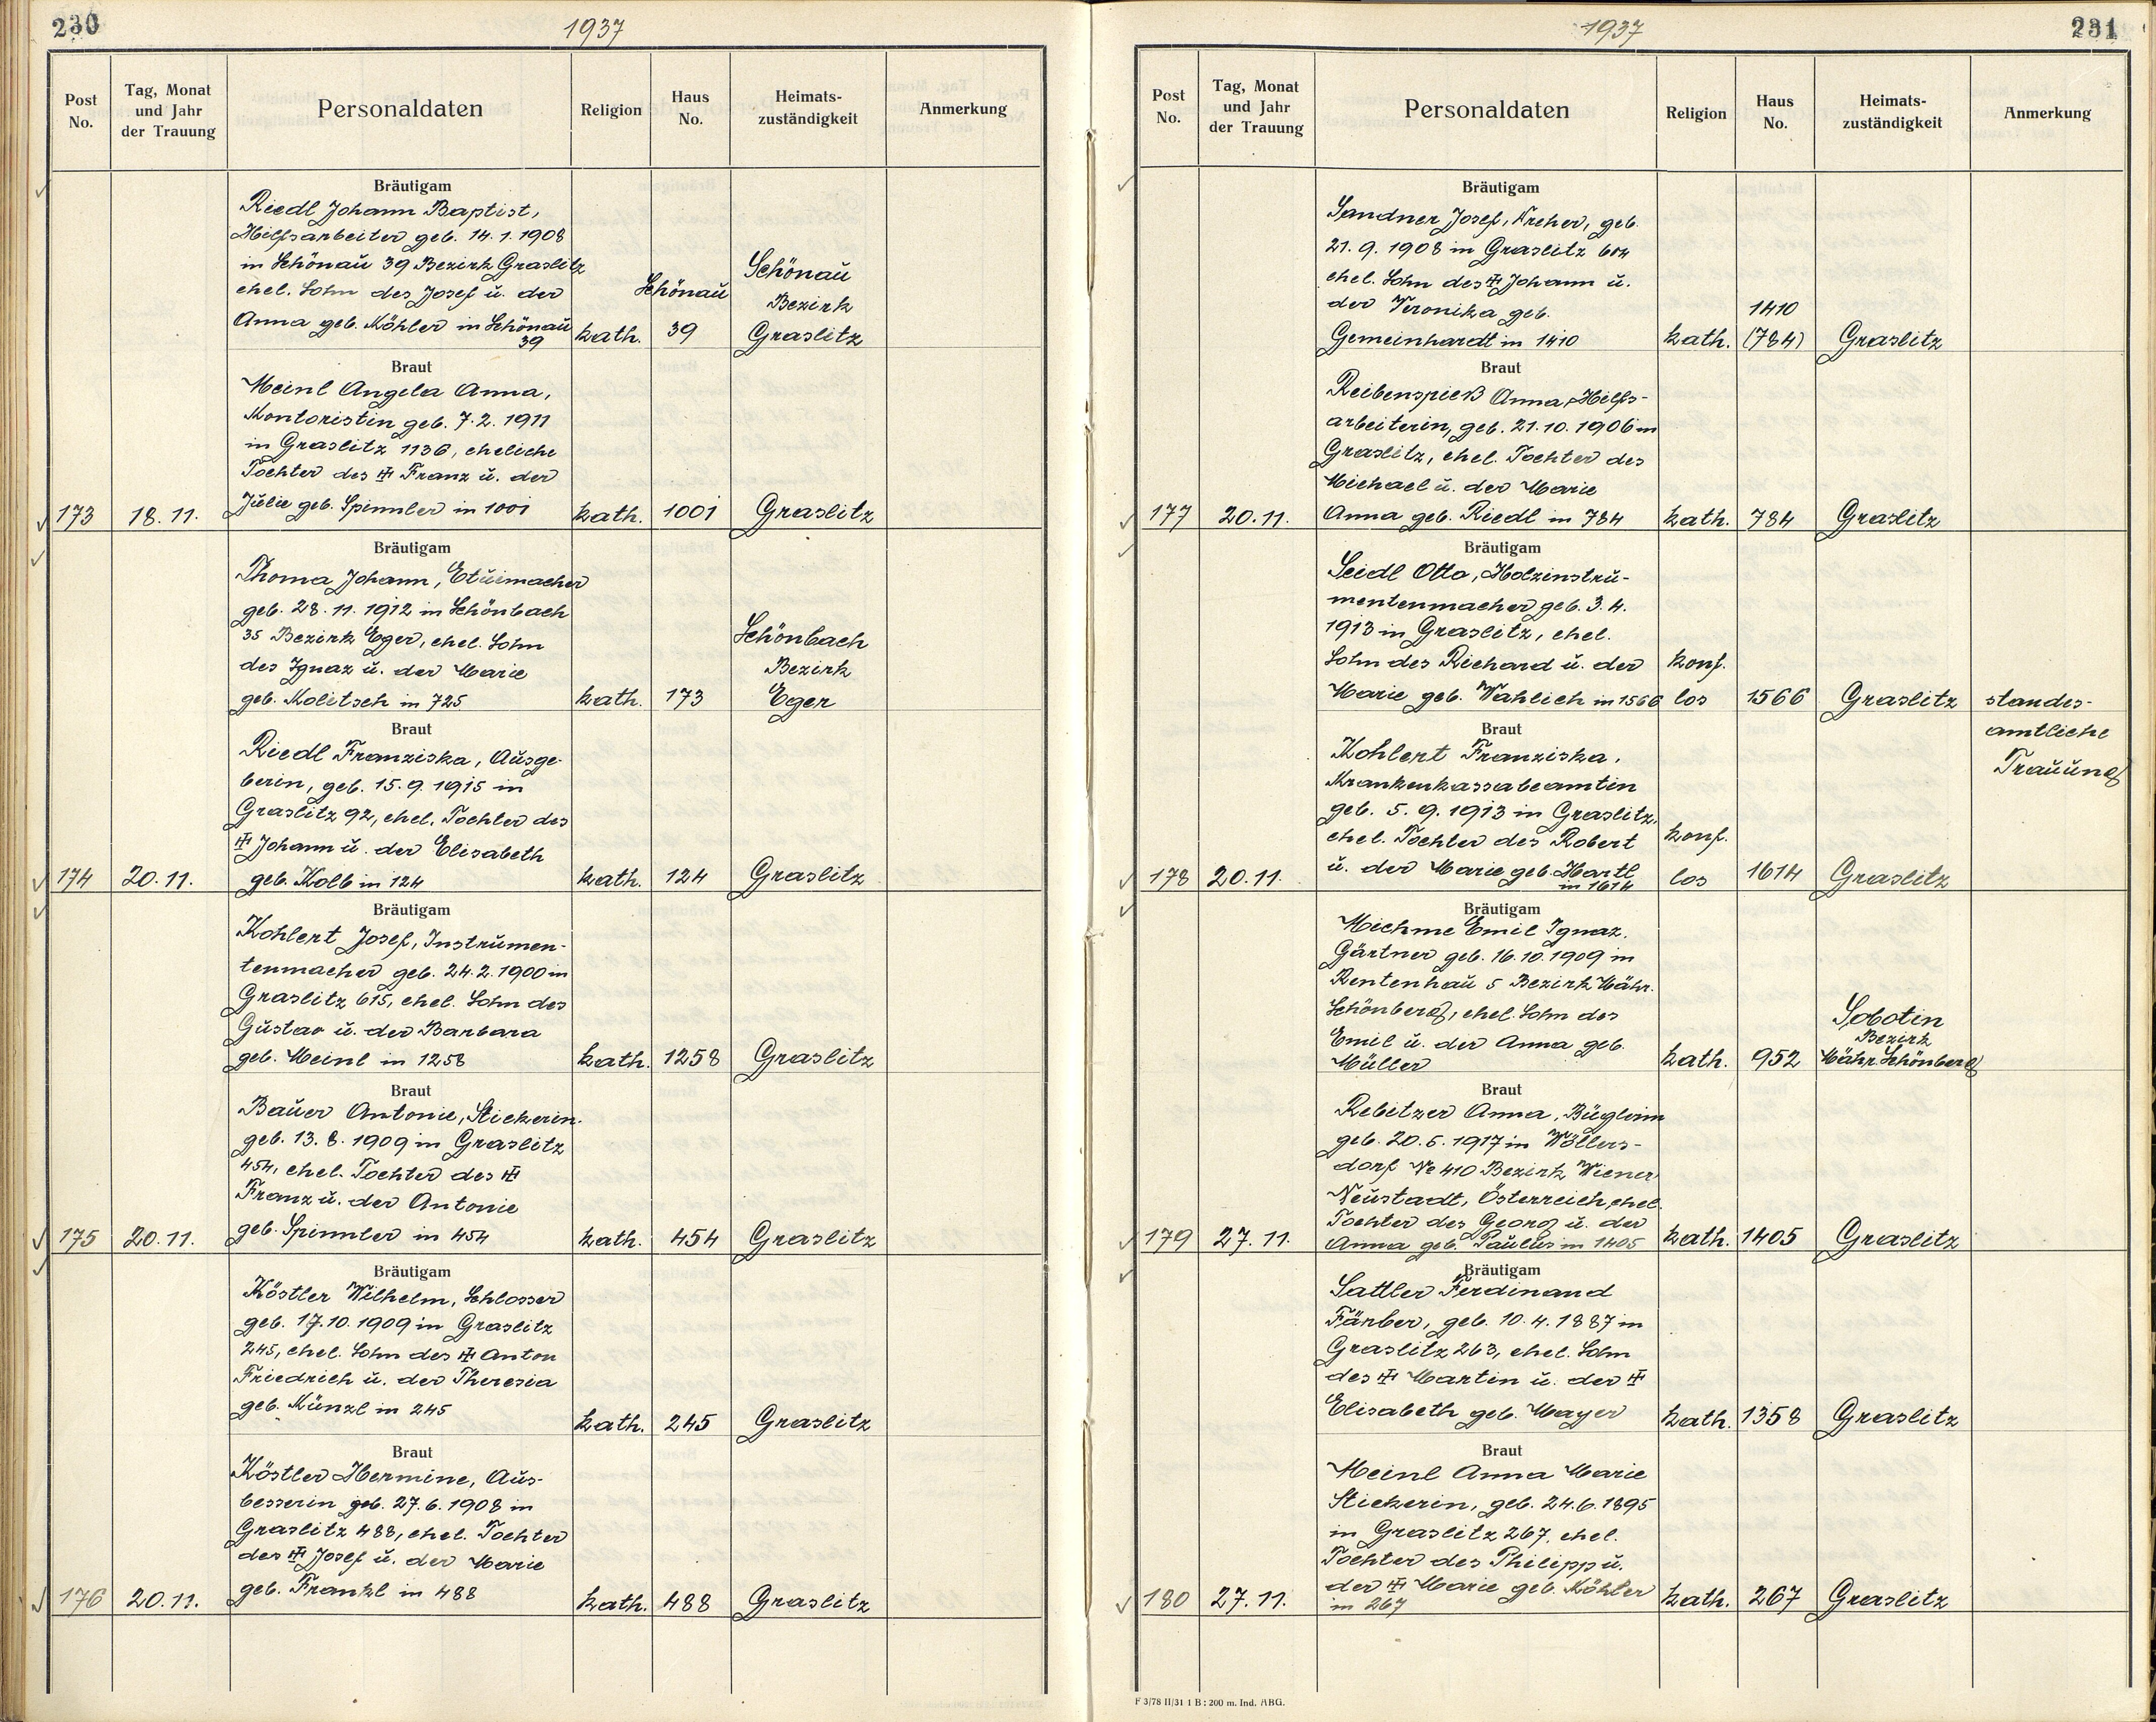 230
1937
Post No.
Tag, Monat und Jahr der Trauung
Personaldaten
Religion
Haus No.
Heimats-zuständigkeit
Anmerkung
Bräutigam
Riedl Johann Baptist,
Hilfsarbeiter geb. 14.1.1908
in Schönau 39 Bezirk Graslitz
ehel. Sohn des Josef u. der
Anna geb. Köhler in Schönau
39
kath.
Schönau
39
Schönau
Bezirk
Graslitz
Braut
Meinl Angela Anna,
Kontoristin geb. 7.2.1911
in Graslitz 1136, eheliche
Tochter des ⚰ Franz u. der
Julie geb. Spinnler in 1001
173
18.11.
kath.
1001
Graslitz
Bräutigam
Thoma Johann, Etuimacher
geb. 28.11.1912 in Schönbach
35 Bezirk Eger, ehel. Sohn
des Ignaz u. der Marie
geb. Kolitsch in 725
kath.
173
Schönbach
Bezirk
Eger
Braut
Riedl Franziska, Ausge-
berin, geb. 15.9.1915 in
Graslitz 92, ehel. Tochter des
Johann u. der Elisabeth
geb. Kolb in 124
174
20.11.
kath.
124
Graslitz
Bräutigam
Kohlert Josef, Instrumen-
tenmacher geb. 24.2.1900 in
Graslitz 615, ehel. Sohn des
Gustav u. der Barbara
geb. Meinl in 1258
kath.
1258
Graslitz
Braut
Bauer Antonie, Stickerin.
geb. 13.8.1909 in Graslitz
454, ehel. Tochter des
Franz u. der Antonie
geb. Spinnler in 454
175
20.11.
kath.
454
Graslitz
Bräutigam
Köstler Wilhelm, Schlosser
geb. 17.10.1909 in Graslitz
245, ehel. Sohn des Anton
Friedrich u. der Theresia
geb. Künzl in 245
kath.
245
Graslitz
Braut
Köstler Hermine, Aus-
besserin geb. 27.6.1908 in
Graslitz 488, ehel. Tochter
des Josef u. der Marie
geb. Frankl in 488
176
20.11.
kath.
488
Graslitz
1937
231
Post No.
Tag, Monat und Jahr der Trauung
Personaldaten
Religion
Haus No.
Heimats-zuständigkeit
Anmerkung
Bräutigam
Sandner Josef, geb.
21.9.1908 in Graslitz 604
ehel. Sohn des Johann u.
der Veronika geb.
Gemeinhardt in 1410
kath.
1410
(784)
Graslitz
Braut
Reibenspieß Anna, Hilfs-
arbeiterin, geb. 21.10.1906 in
Graslitz, ehel. Tochter des
Michael u. der Marie
Anna geb. Riedl in 784
177
20.11.
kath.
784
Graslitz
Bräutigam
Seidl Otto, Holzinstru-
mentenmacher geb. 3.4.
1913 in Graslitz, ehel.
Sohn des Richard u. der
Marie geb. Wahlich in 1566
konf.
los
1566
Graslitz
standes-
amtliche
Trauung
Braut
Kohlert Franziska,
Krankenkassabeamtin
geb. 5.9.1913 in Graslitz,
ehel. Tochter des Robert
u. der Marie geb. Hartl
in 1614
178
20.11.
konf.
los
1614
Graslitz
Bräutigam
Michme Emil Ignaz,
Gärtner geb. 16.10.1909 in
Rentenhau 5 Bezirk Mähr.
Schönberg, ehel. Sohn des
Emil u. der Anna geb.
Müller
kath.
952
Sobotin
Bezirk
Mähr. Schönberg
Braut
Rebitzer Anna, Büglerin
geb. 20.5.1917 in Wöllers-
dorf № 410 Bezirk Wiener
Neustadt, Österreich, ehel.
Tochter des Georg u. der
Anna geb. Paulus in 1405
179
27.11.
kath.
1405
Graslitz
Bräutigam
Sattler Ferdinand
Färber, geb. 10.4.1887 in
Graslitz 263, ehel. Sohn
des Martin u. der
Elisabeth geb. Mayer
kath.
1358
Graslitz
Braut
Meinl Anna Marie
Stickerin, geb. 24.6.1895
in Graslitz 267, ehel.
Tochter des Philipp u.
der Marie geb. Köhler
in 267
180
27.11.
kath.
267
Graslitz
F 3/78 II/31 1 B: 200 m. Ind. ABG.